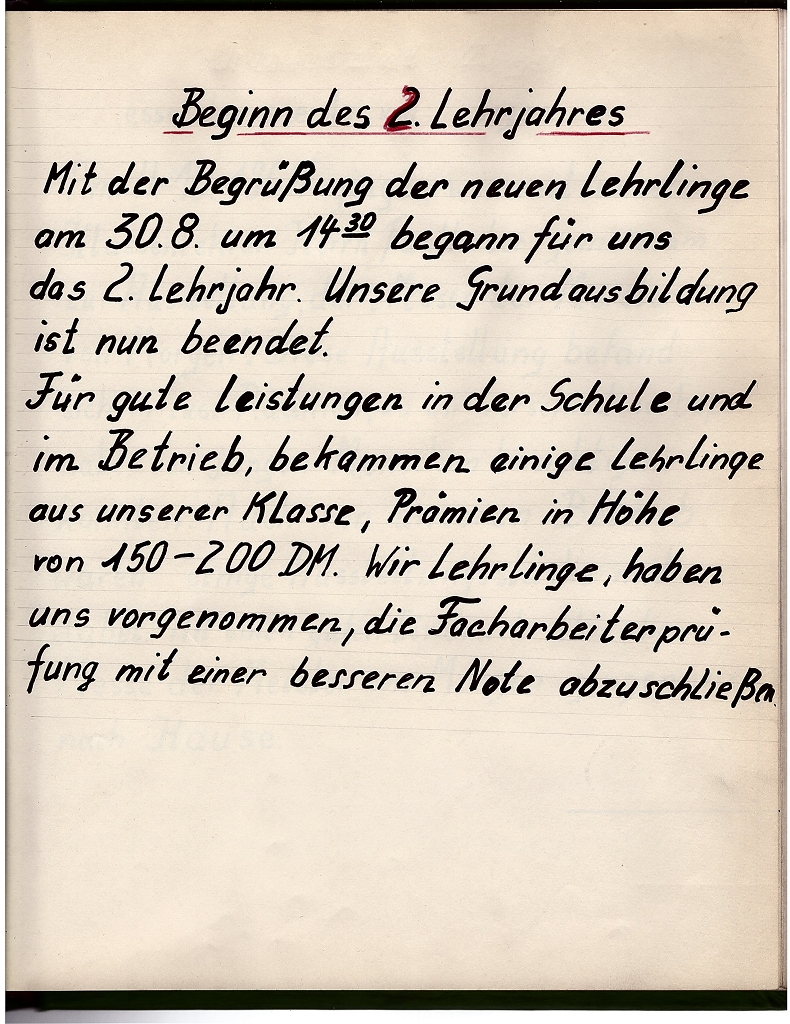 Beginn des 2. Lehrjahres
Mit der Begrüßung der neuen Lehrlinge
am 30.8. um 14³⁰ begann für uns
das 2. Lehrjahr. Unsere Grundausbildung
ist nun beendet.
Für gute Leistungen in der Schule und
im Betrieb, bekammen einige Lehrlinge
aus unserer Klasse, Prämien in Höhe
von 150-200 DM. Wir Lehrlinge, haben
uns vorgenommen, die Facharbeiterprü-
fung mit einer besseren Note abzuschließen.